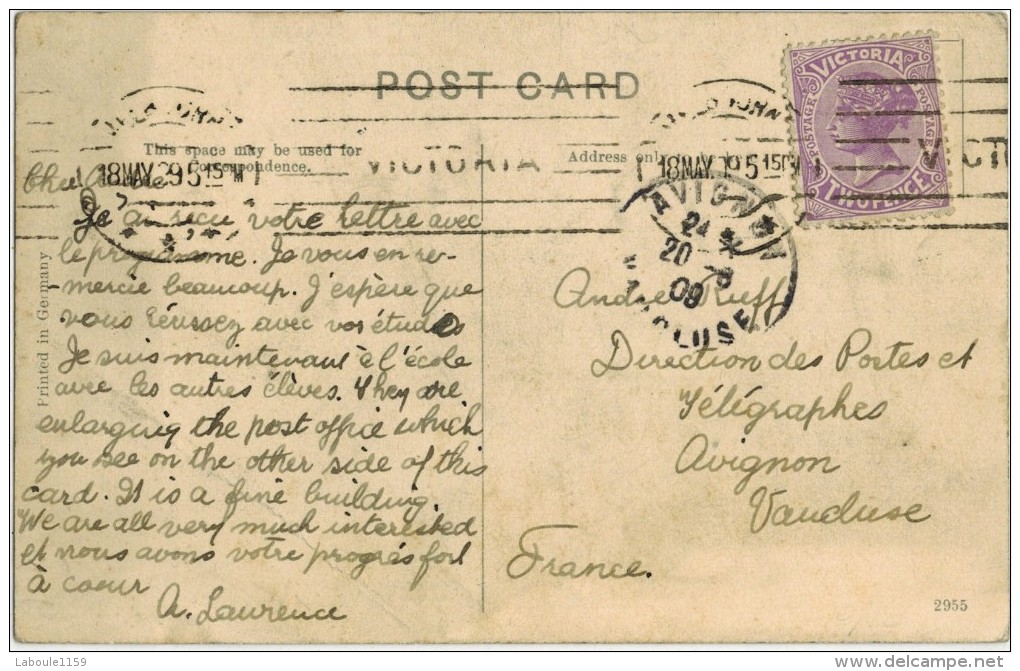 POST CARD
This space may be used for
Correspondence.
Address only
VICTORIA
VICTORIA
POSTAGE
POSTAGE
TWO PENCE
18 MAY 09 5 15 PM
18 MAY 09 5 15 PM
AVIGNON
24
20 - 6
09
VAUCLUSE
Je ai reçu votre lettre avec
le programme. Je vous en re-
mercie beaucoup. J'espère que
vous réussez avec vos études
Je suis maintenant à l'école
avec les autres élèves. They are
enlarging the post office which
you see on the other side of this
card. It is a fine building.
We are all very much interested
et nous avons votre progrés fort
à coeur
A. Laurence
André Ruff
Direction des Postes et
Télégraphes
Avignon
Vaucluse
France.
Printed in Germany
2955
Laboule1159
delcampe.net